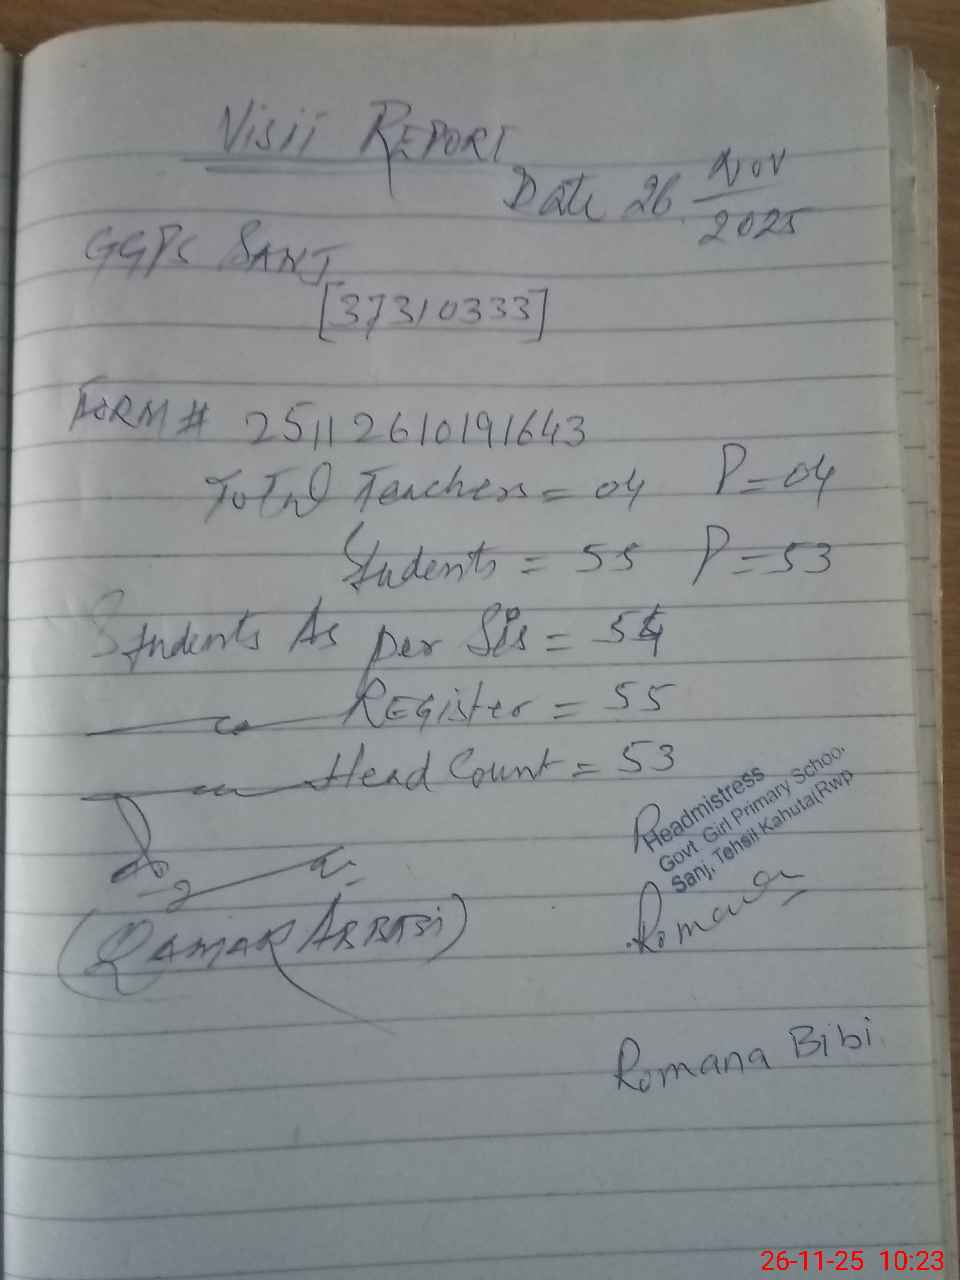 Visit REPORT
Date 26 Nov
2025
GGPS SANJ
[37310333]
FORM # 25112610191643
Total Teachers = 04 P = 04
Students = 55 P = 53
Students As per Sis = 54
Register = 55
Head Count = 53
Headmistress
Govt Girl Primary School
Sanj, Tehsil Kahuta(Rwp
Romana
(QAMAR ABBASI)
Romana Bibi
26-11-25 10:23